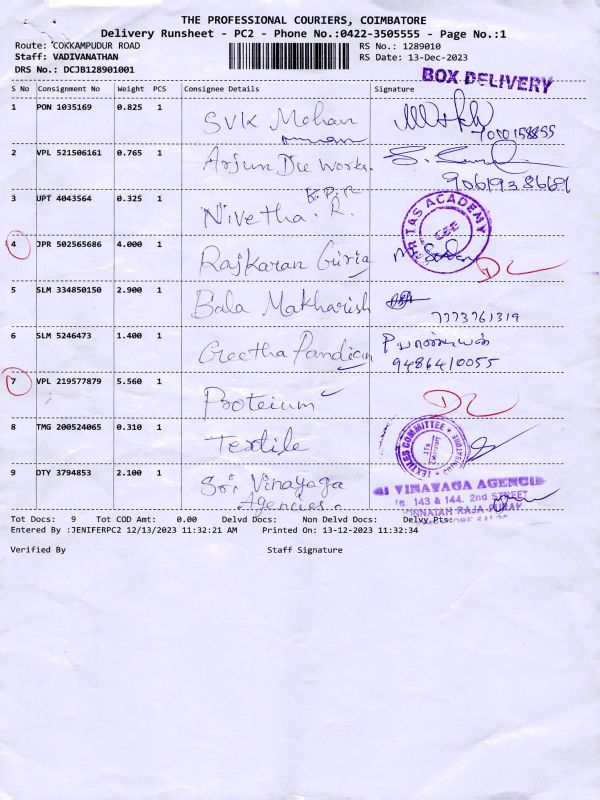 THE PROFESSIONAL COURIERS, COIMBATORE
Delivery Runsheet - PC2 - Phone No.:0422-3505555 - Page No.:1
Route: COKKAMPUDUR ROAD
RS No.: 1289010
Staff: VADIVANATHAN
RS Date: 13-Dec-2023
DRS No.: DCJB128901001
BOX DELIVERY
S No Consignment No Weight PCS Consignee Details Signature
1 PON 1035169 0.825 1 SVK Mohan
7010158855
2 VPL 521506161 0.765 1 Arjun Die Works.
9061938669
3 UPT 4043564 0.325 1 Nivetha. R.
K.P.R
TAS ACADEMY
4 JPR 502565686 4.000 1 Rajkaran Guria
DL
5 SLM 334850150 2.900 1 Bala Makharish
7773761319
6 SLM 5246473 1.400 1 Geetha Pandian
9486410055
7 VPL 219577879 5.560 1 Proteium
DL
8 TMG 200524065 0.310 1 Textile
TEXTILES COMMITTEE
9 DTY 3794853 2.100 1 Sri Vinayaga
Agencies.
VINAYAGA AGENCIE
143 & 144, 2nd STREET
Tot Docs: 9 Tot COD Amt: 0.00 Delvd Docs: Non Delvd Docs: Delvy Pts:
Entered By :JENIFERPC2 12/13/2023 11:32:21 AM Printed On: 13-12-2023 11:32:34
Verified By Staff Signature